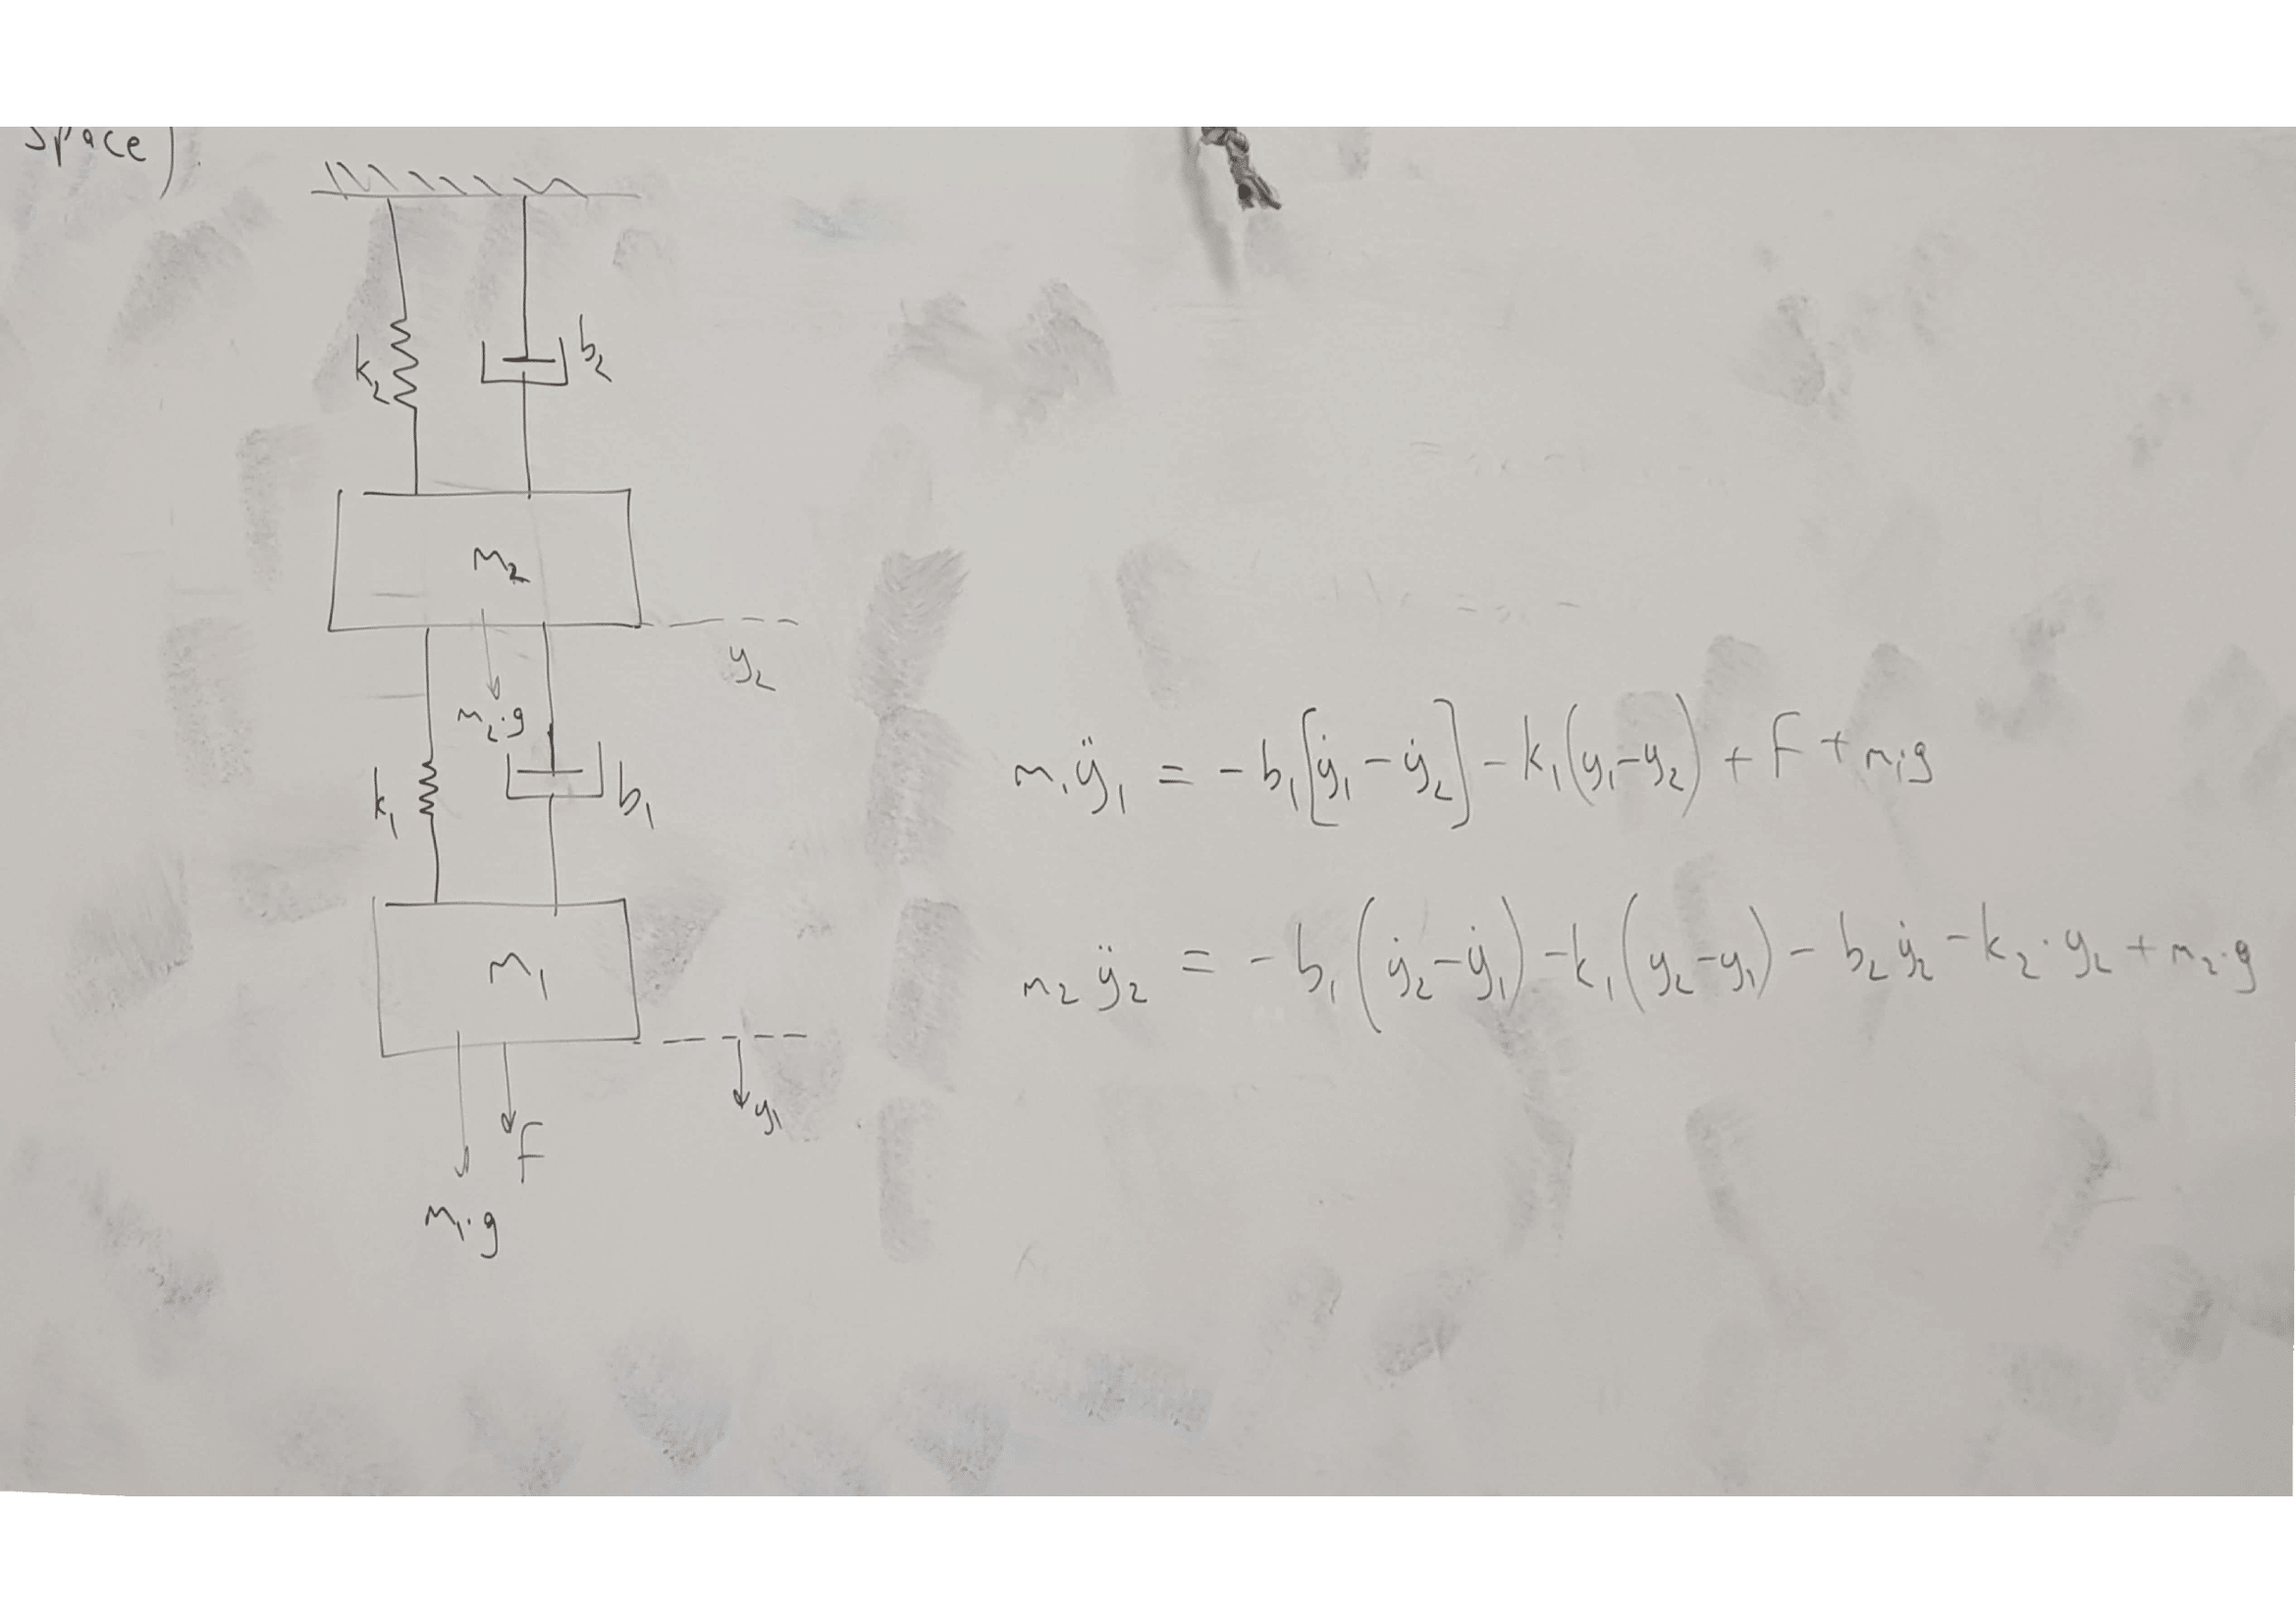 space)
k₂
b₂
m₂
y₂
m₂·g
k₁
b₁
m₁
y₁
F
m₁·g
m₁ÿ₁ = -b₁[ẏ₁-ẏ₂] - k₁(y₁-y₂) + F + m₁g
m₂ÿ₂ = -b₁(ẏ₂-ẏ₁) - k₁(y₂-y₁) - b₂ẏ₂ - k₂·y₂ + m₂·g